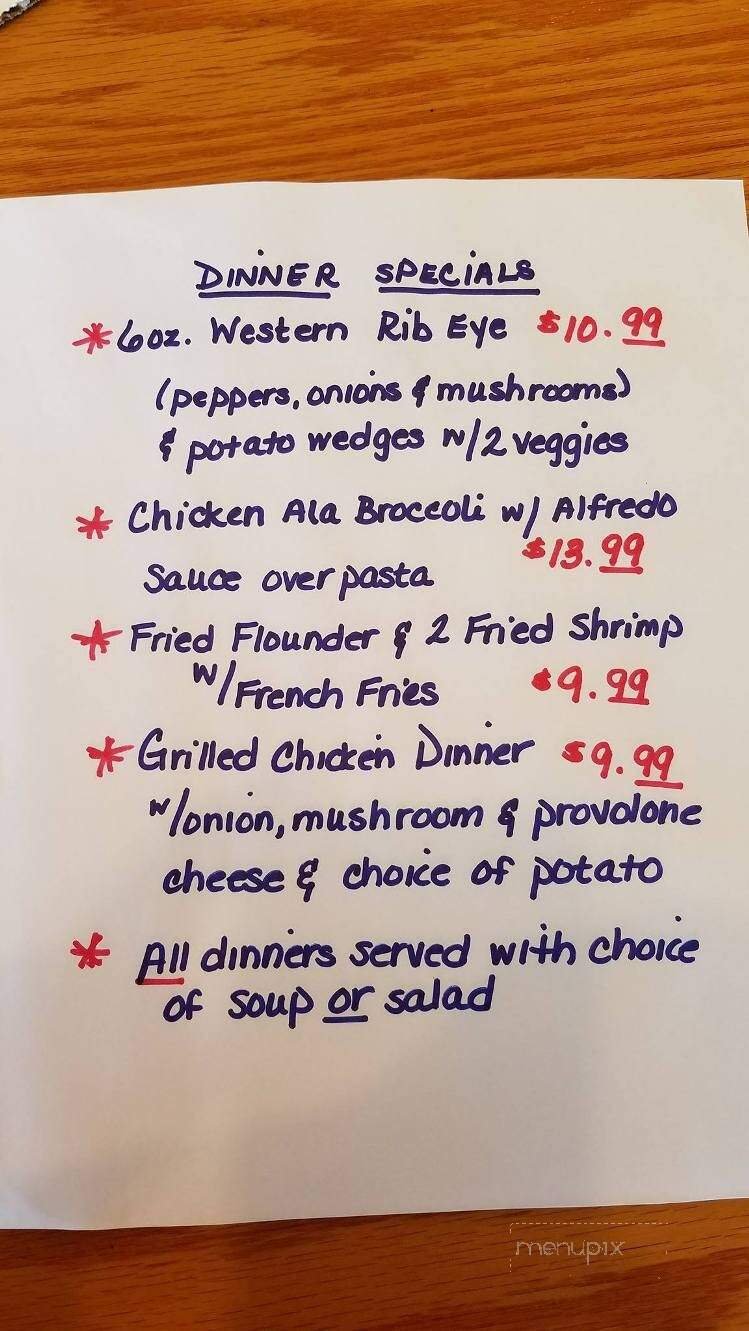 DINNER SPECIALS
* 6oz. Western Rib Eye $10.99
(peppers, onions & mushrooms)
& potato wedges w/2 veggies
* Chicken Ala Broccoli w/ Alfredo
$13.99
Sauce over pasta
* Fried Flounder & 2 Fried Shrimp
w/French Fries $9.99
* Grilled Chicken Dinner $9.99
w/onion, mushroom & provolone
cheese & choice of potato
* All dinners served with choice
of soup or salad
menupix